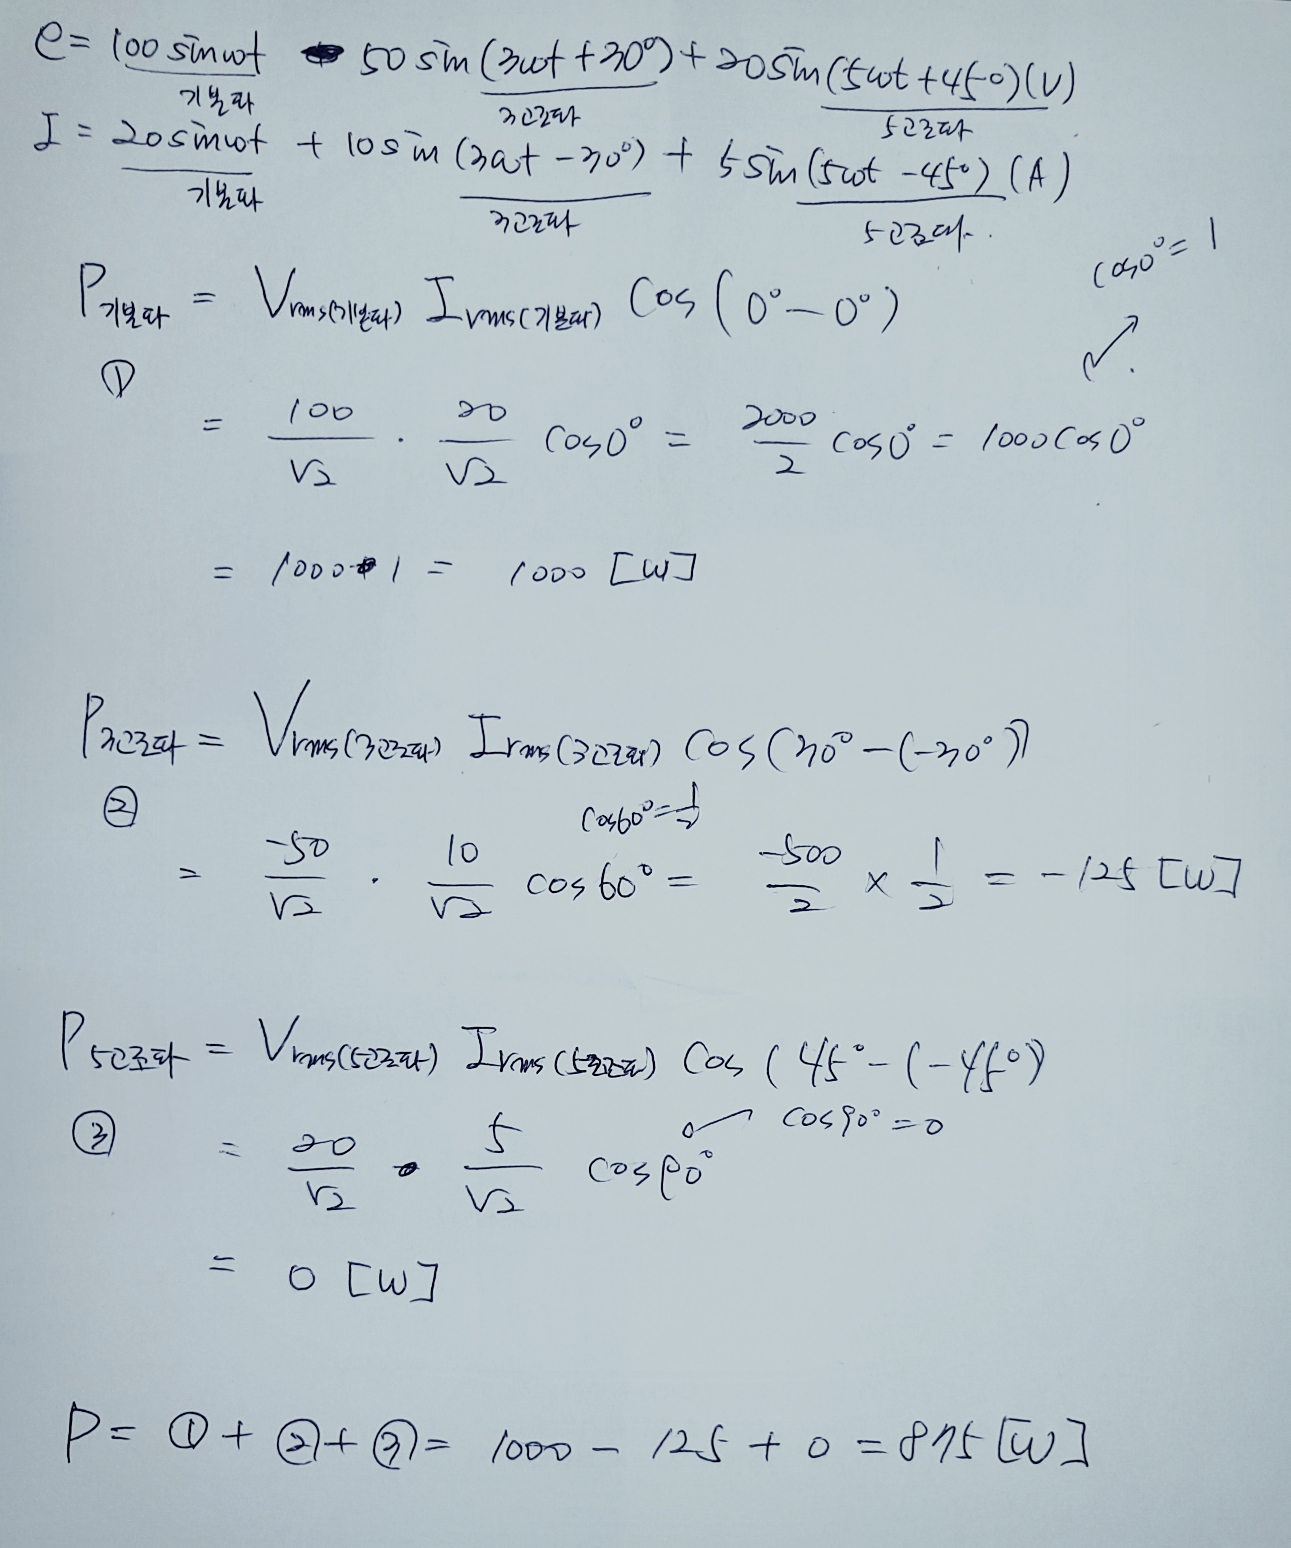 e = 100 sinωt - 50 sin(3ωt+30°) + 20 sin(5ωt+45°)(V)
기본파 3고조파 5고조파
I = 20 sinωt + 10 sin(3ωt-30°) + 5 sin(5ωt-45°)(A)
기본파 3고조파 5고조파.
P기본파 = Vrms(기본파) Irms(기본파) Cos(0°-0°)
cos0°=1
①
= 100/√2 · 20/√2 cos0° = 2000/2 cos0° = 1000 Cos0°
= 1000·1 = 1000 [W]
P3고조파 = Vrms(3고조파) Irms(3고조파) Cos(30°-(-30°))
②
cos60°=1/2
= -50/√2 · 10/√2 cos60° = -500/2 × 1/2 = -125 [W]
P5고조파 = Vrms(5고조파) Irms(5고조파) Cos(45°-(-45°)
③
cos90°=0
= 20/√2 · 5/√2 cos90°
= 0 [W]
P = ①+②+③ = 1000 - 125 + 0 = 875 [W]